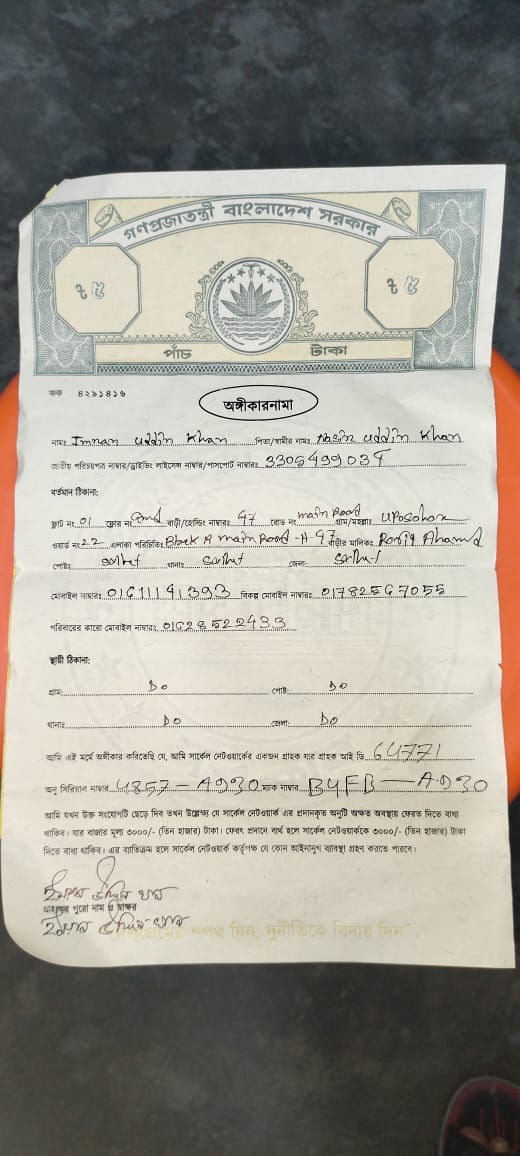 গণপ্রজাতন্ত্রী বাংলাদেশ সরকার
৳ ৫ ৳ ৫
পাঁচ টাকা
কক ৪২৯১৪১৬
অঙ্গীকারনামা
নামঃ Imran uddin Khan পিতা/স্বামীর নামঃ Nasir uddin Khan
জাতীয় পরিচয়পত্র নাম্বার/ড্রাইভিং লাইসেন্স নাম্বার/পাসপোর্ট নাম্বারঃ
বর্তমান ঠিকানা:
ফ্লাট নং 01 ফ্লোর নং 2nd বাড়ী/হোল্ডিং নাম্বারঃ 47 রোড নং main Road গ্রাম/মহল্লাঃ UPosohor
ওয়ার্ড নং 22 এলাকা পরিচিতিঃ Block A main Road -A- 97 বাড়ীর মালিকঃ Rofiq Ahamd
পোষ্টঃ sylhet থানাঃ sylhet জেলাঃ sylhet
মোবাইল নাম্বারঃ 01611191393 বিকল্প মোবাইল নাম্বারঃ 01782567055
পরিবারের কারো মোবাইল নাম্বারঃ 01628522433
স্থায়ী ঠিকানা:
গ্রামঃ Do পোষ্টঃ Do
থানাঃ Do জেলাঃ Do
আমি এই মর্মে অঙ্গীকার করিতেছি যে, আমি সার্কেল নেটওয়ার্কের একজন গ্রাহক যার গ্রাহক আই ডি 64771
অনু সিরিয়াল নাম্বার 4857 - A930 ম্যাক নাম্বার B4FB - A930
আমি যখন উক্ত সংযোগটি ছেড়ে দিব তখন উল্লেখ্য যে সার্কেল নেটওয়ার্ক এর প্রদানকৃত অনুটি অক্ষত অবস্থায় ফেরত দিতে বাধ্য
থাকিব। যার বাজার মূল্য ৩০০০/- (তিন হাজার) টাকা। ফেরৎ প্রদানে ব্যর্থ হলে সার্কেল নেটওয়ার্ককে ৩০০০/- (তিন হাজার) টাকা
দিতে বাধ্য থাকিব। এর ব্যতিক্রম হলে সার্কেল নেটওয়ার্ক কর্তৃপক্ষ যে কোন আইনানুগ ব্যবস্থা গ্রহণ করতে পারবে।
ইমরান উদ্দিন খান
গ্রাহকের পুরো নাম ও স্বাক্ষর
ইমরান উদ্দিন খান
"দেশপ্রেমের শপথ নিন, দুর্নীতিকে বিদায় দিন"